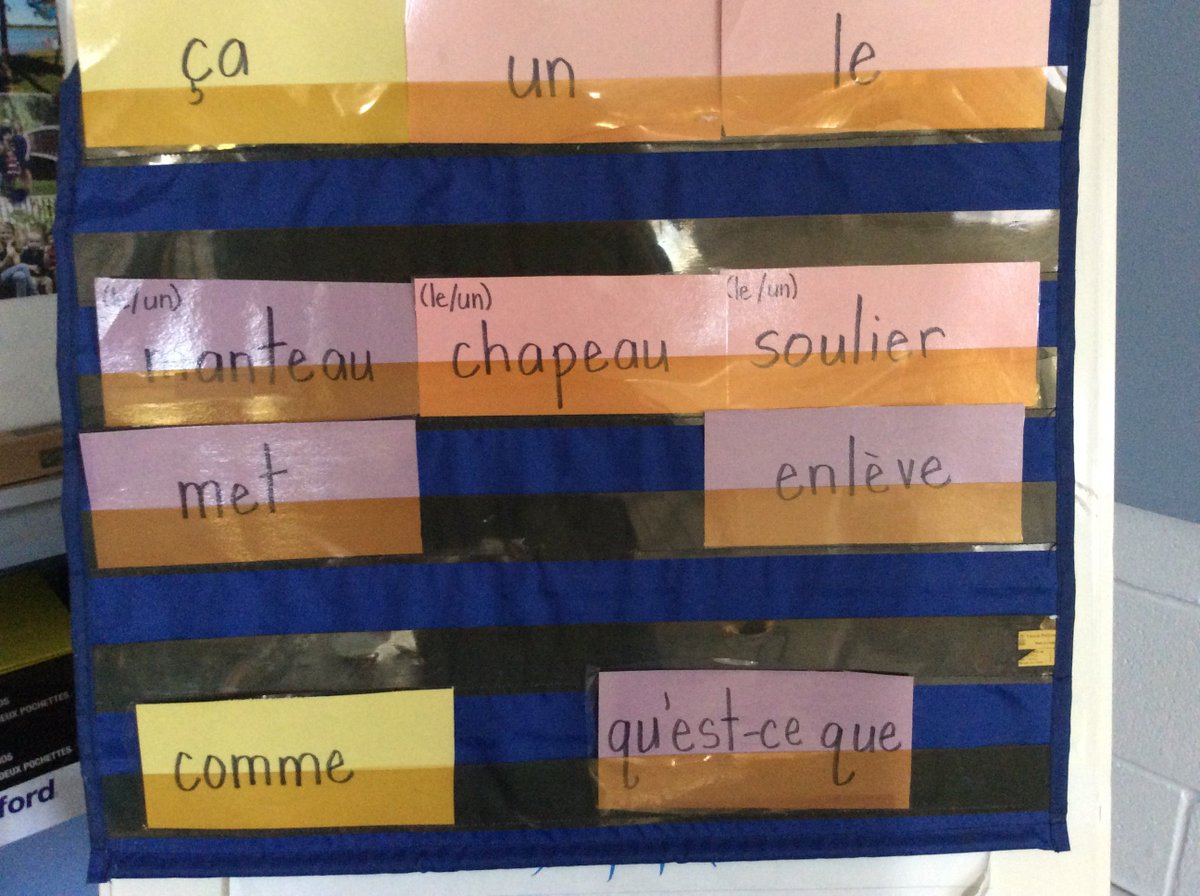 ça un le
(le/un) (le/un) (le/un)
manteau chapeau soulier
met enlève
comme qu'est-ce que
DEUX POCHETTES
DEUX POCHETTES
ford